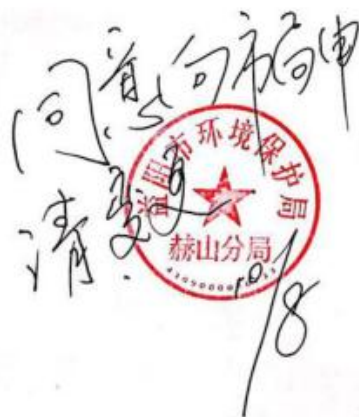 同意向市局申
请变更.
益阳市环境保护局
赫山分局
10/8